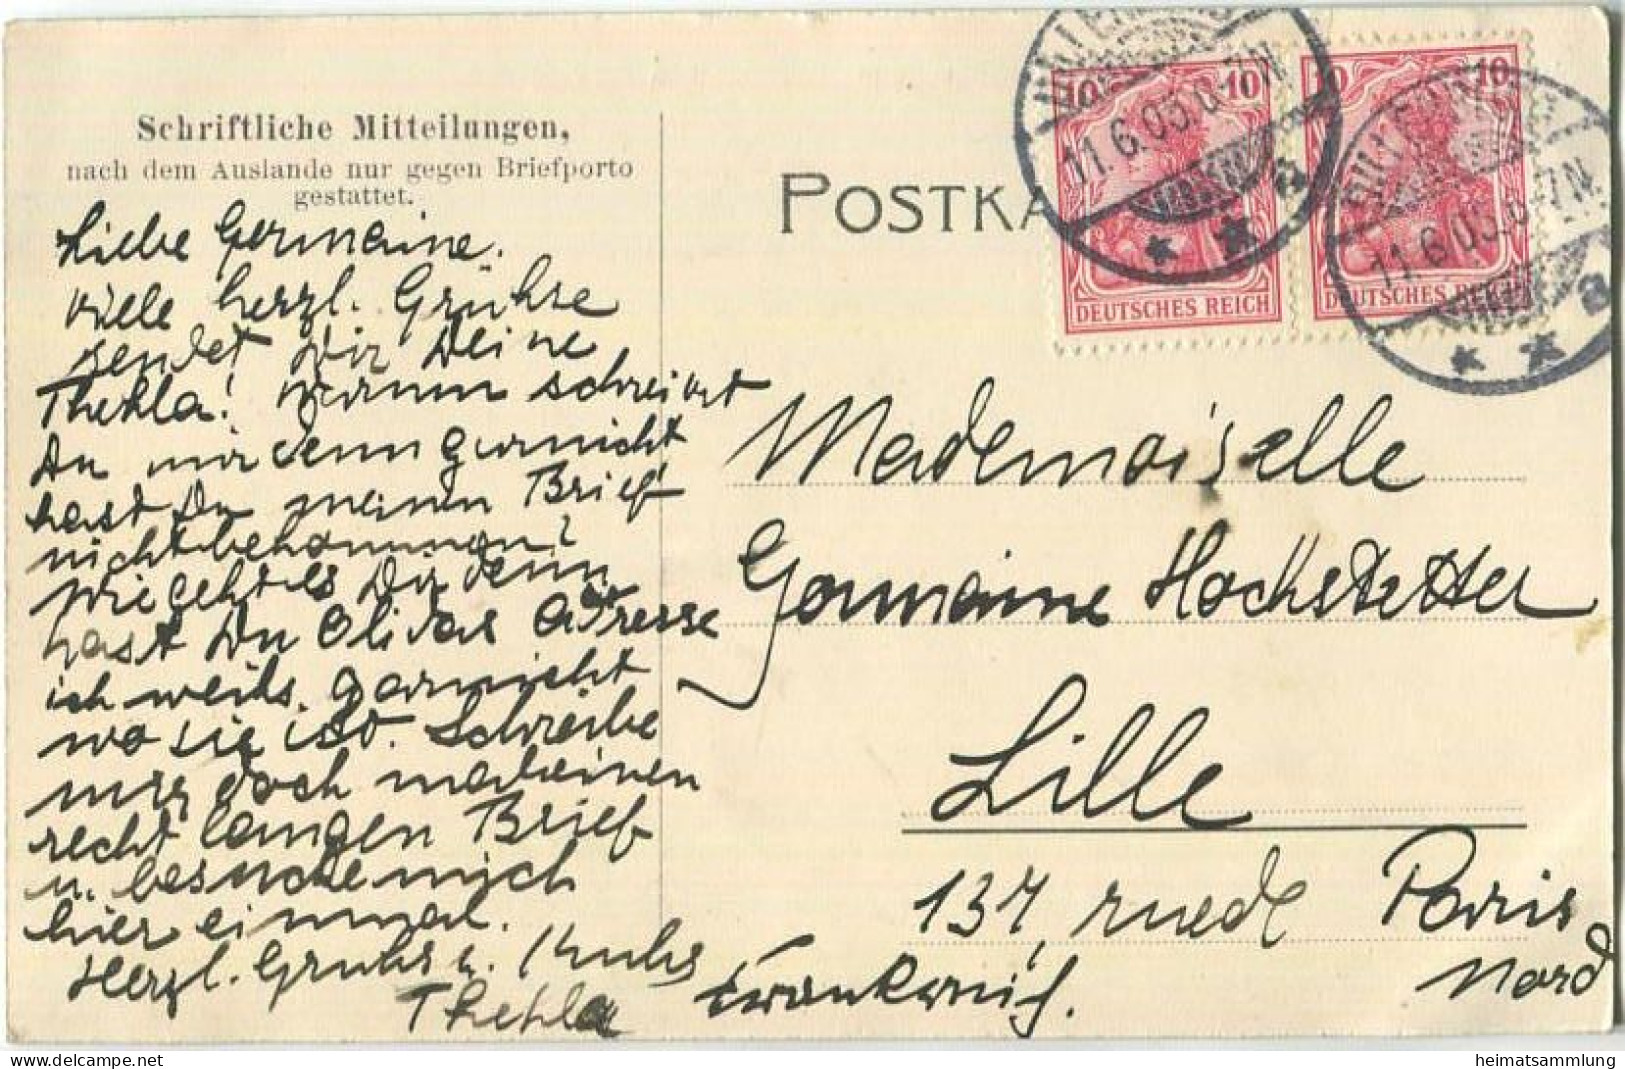 Schriftliche Mitteilungen,
nach dem Auslande nur gegen Briefporto
gestattet.
Liebe Germaine.
viele herzl. Grühse
sendet Dir Deine
Thekla! Warum schreibst
Du mir denn garnicht
hast Du meinen Brief
nicht bekommen?
Wie geht es Dir denn
hast Du Olidas Adresse
ich weihs garnicht
wo sie ist. Schreibe
mir doch mal einen
recht langen Brief
u. besuche mich
hier einmal.
Herzl. Gruhs u. Kuhs
Thekla
POSTKA
10 10
DEUTSCHES REICH
10 10
DEUTSCHES REICH
11.6.05.6-7N.
a
11.6.05.6-7N.
a
Mademoiselle
Germaine Hochstetter
Lille
137, rue de Paris
Nord
Frankreich.
heimatsammlung